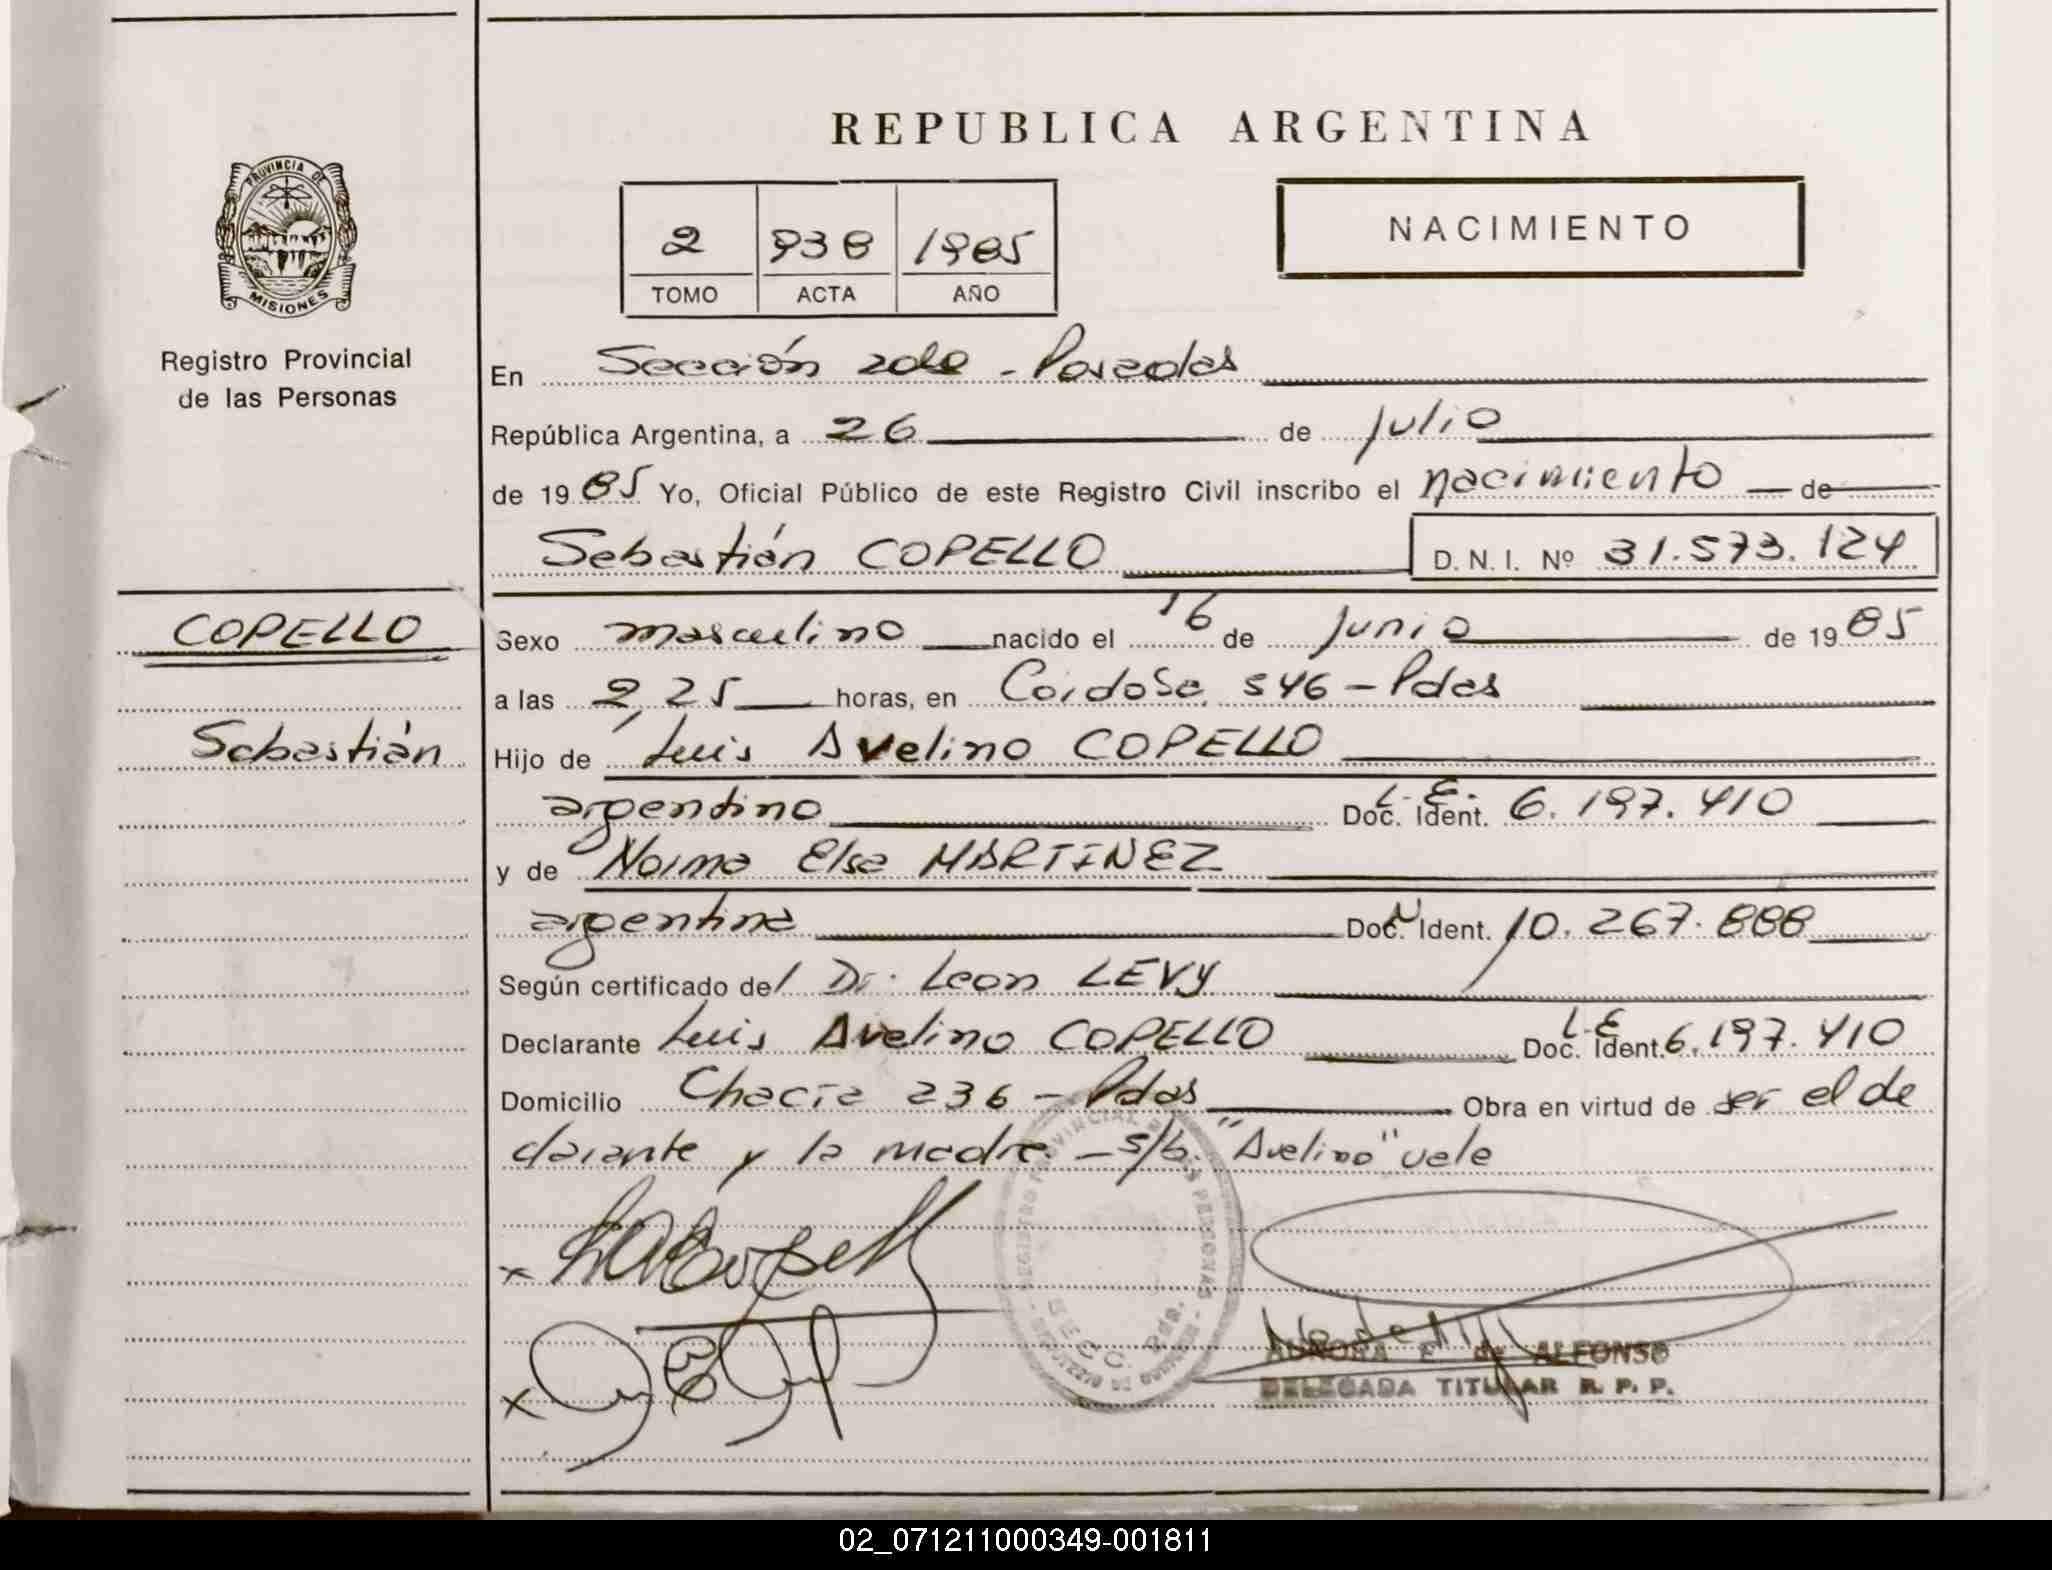 REPUBLICA ARGENTINA
PROVINCIA DE
MISIONES
Registro Provincial
de las Personas
2 938 1985
TOMO ACTA AÑO
NACIMIENTO
En Sección 2da - Posadas
República Argentina, a 26 de julio
de 1985 Yo, Oficial Público de este Registro Civil inscribo el nacimiento de
Sebastián COPELLO D. N. I. Nº 31.573.124
COPELLO
Sebastián
Sexo masculino nacido el 16 de junio de 1985
a las 2,25 horas, en Córdoba 546 - Pdas
Hijo de Luis Avelino COPELLO
argentino Doc. Ident. L.E. 6.197.410
y de Norma Elsa MARTINEZ
argentina Doc. Ident. 10.267.888
Según certificado del Dr. Leon LEVY
Declarante Luis Avelino COPELLO Doc. Ident. L.E 6.197.410
Domicilio Chacra 236 - Pdas Obra en virtud de ser el de
clarante y la madre - s/b. "Avelino" vale
REGISTRO PROVINCIAL DE LAS PERSONAS
SECC. 2da.
AURORA E. de ALFONSO
DELEGADA TITULAR R. P. P.
02_071211000349-001811